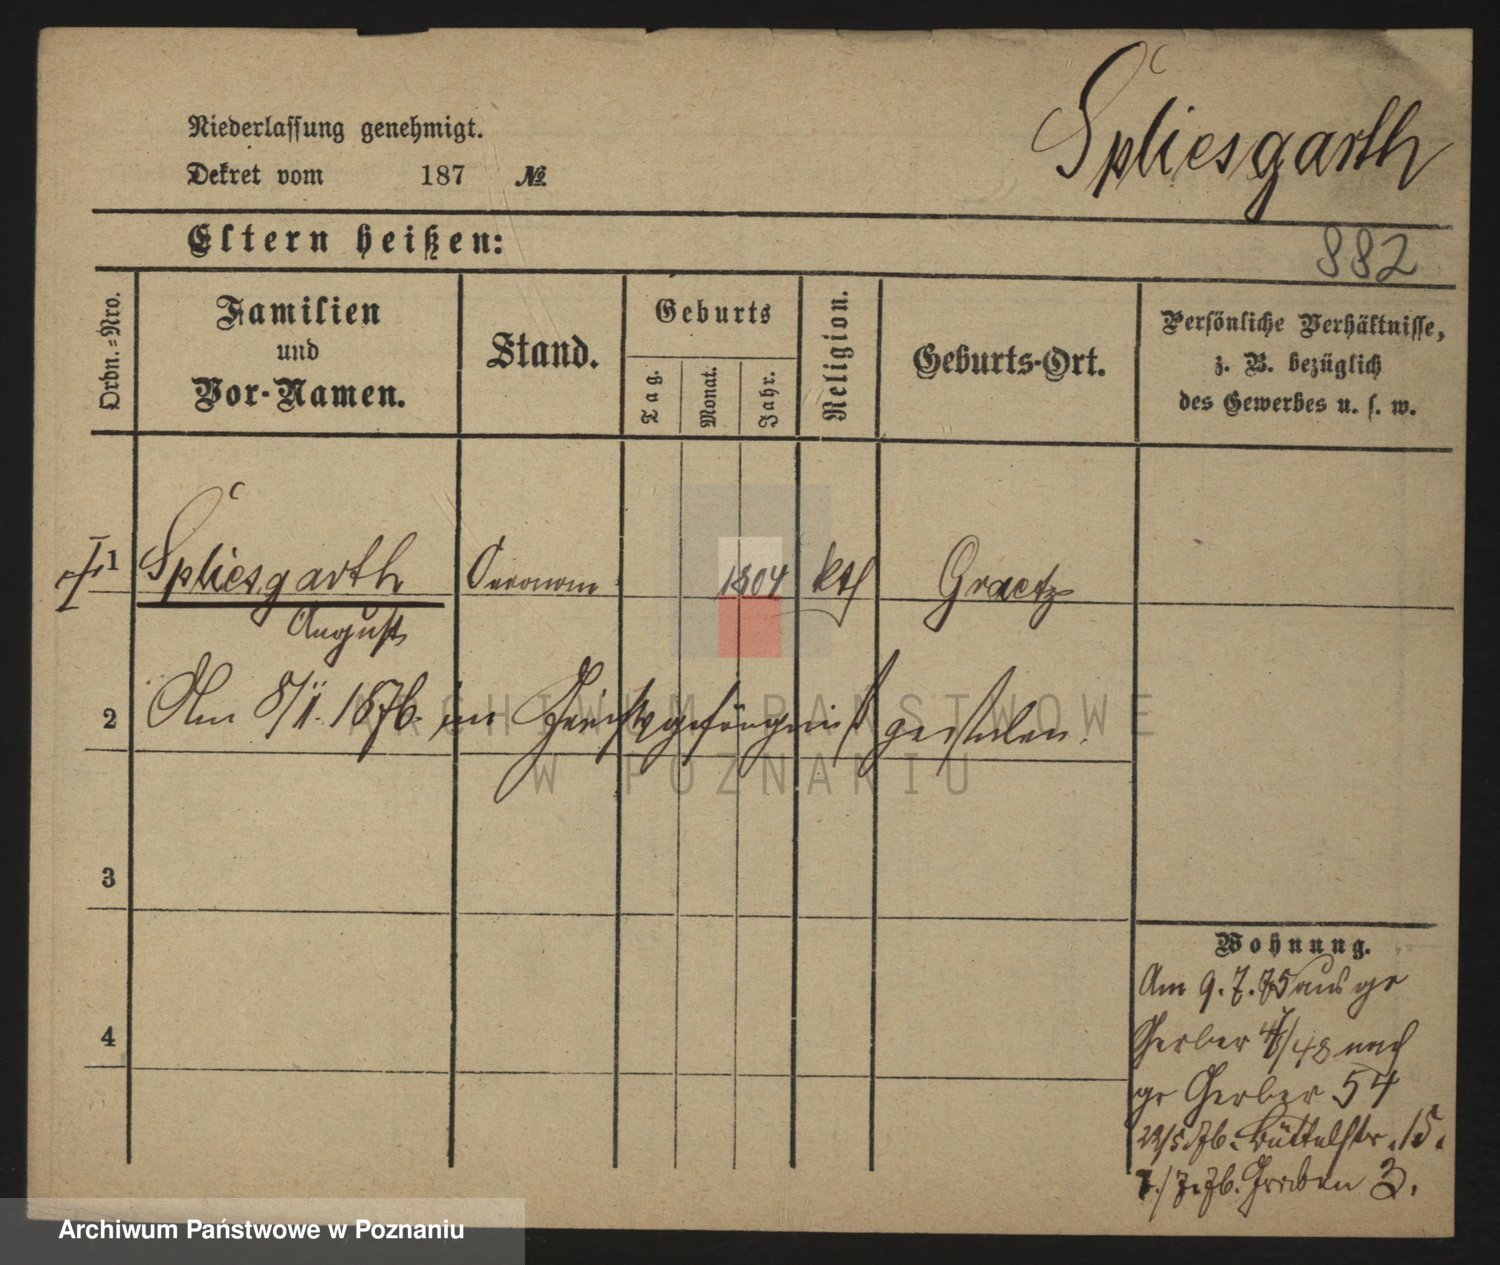 Spliesgarth
Niederlassung genehmigt.
Dekret vom 187 №
Eltern heißen:
882
Ordn.-Nro.
Familien
und
Vor-Namen.
Stand.
Geburts
Tag.
Monat.
Jahr.
Religion.
Geburts-Ort.
Persönliche Verhältnisse,
z. B. bezüglich
des Gewerbes u. s. w.
1 Spliesgarth Oeconom 1804 kth Graetz
August
2 Am 8/11. 1876. im gestorben.
3
4
Wohnung.
Am 9.7.75 aus gr
Gerber 47/48 nach
gr Gerber 54
22/5 76. Büttelstr. 15.
7./7. 76. Graben 3.
ARCHIWUM PAŃSTWOWE
W POZNANIU
Archiwum Państwowe w Poznaniu